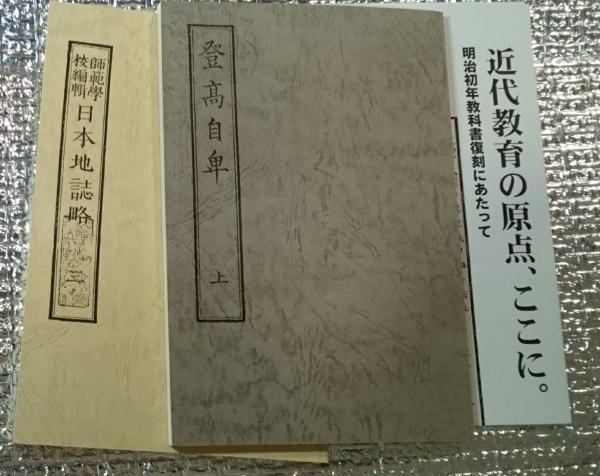 近代教育の原点、ここに。
明治初年教科書復刻にあたって
登高自卑
上
師範學
校編輯
日本地誌略
三